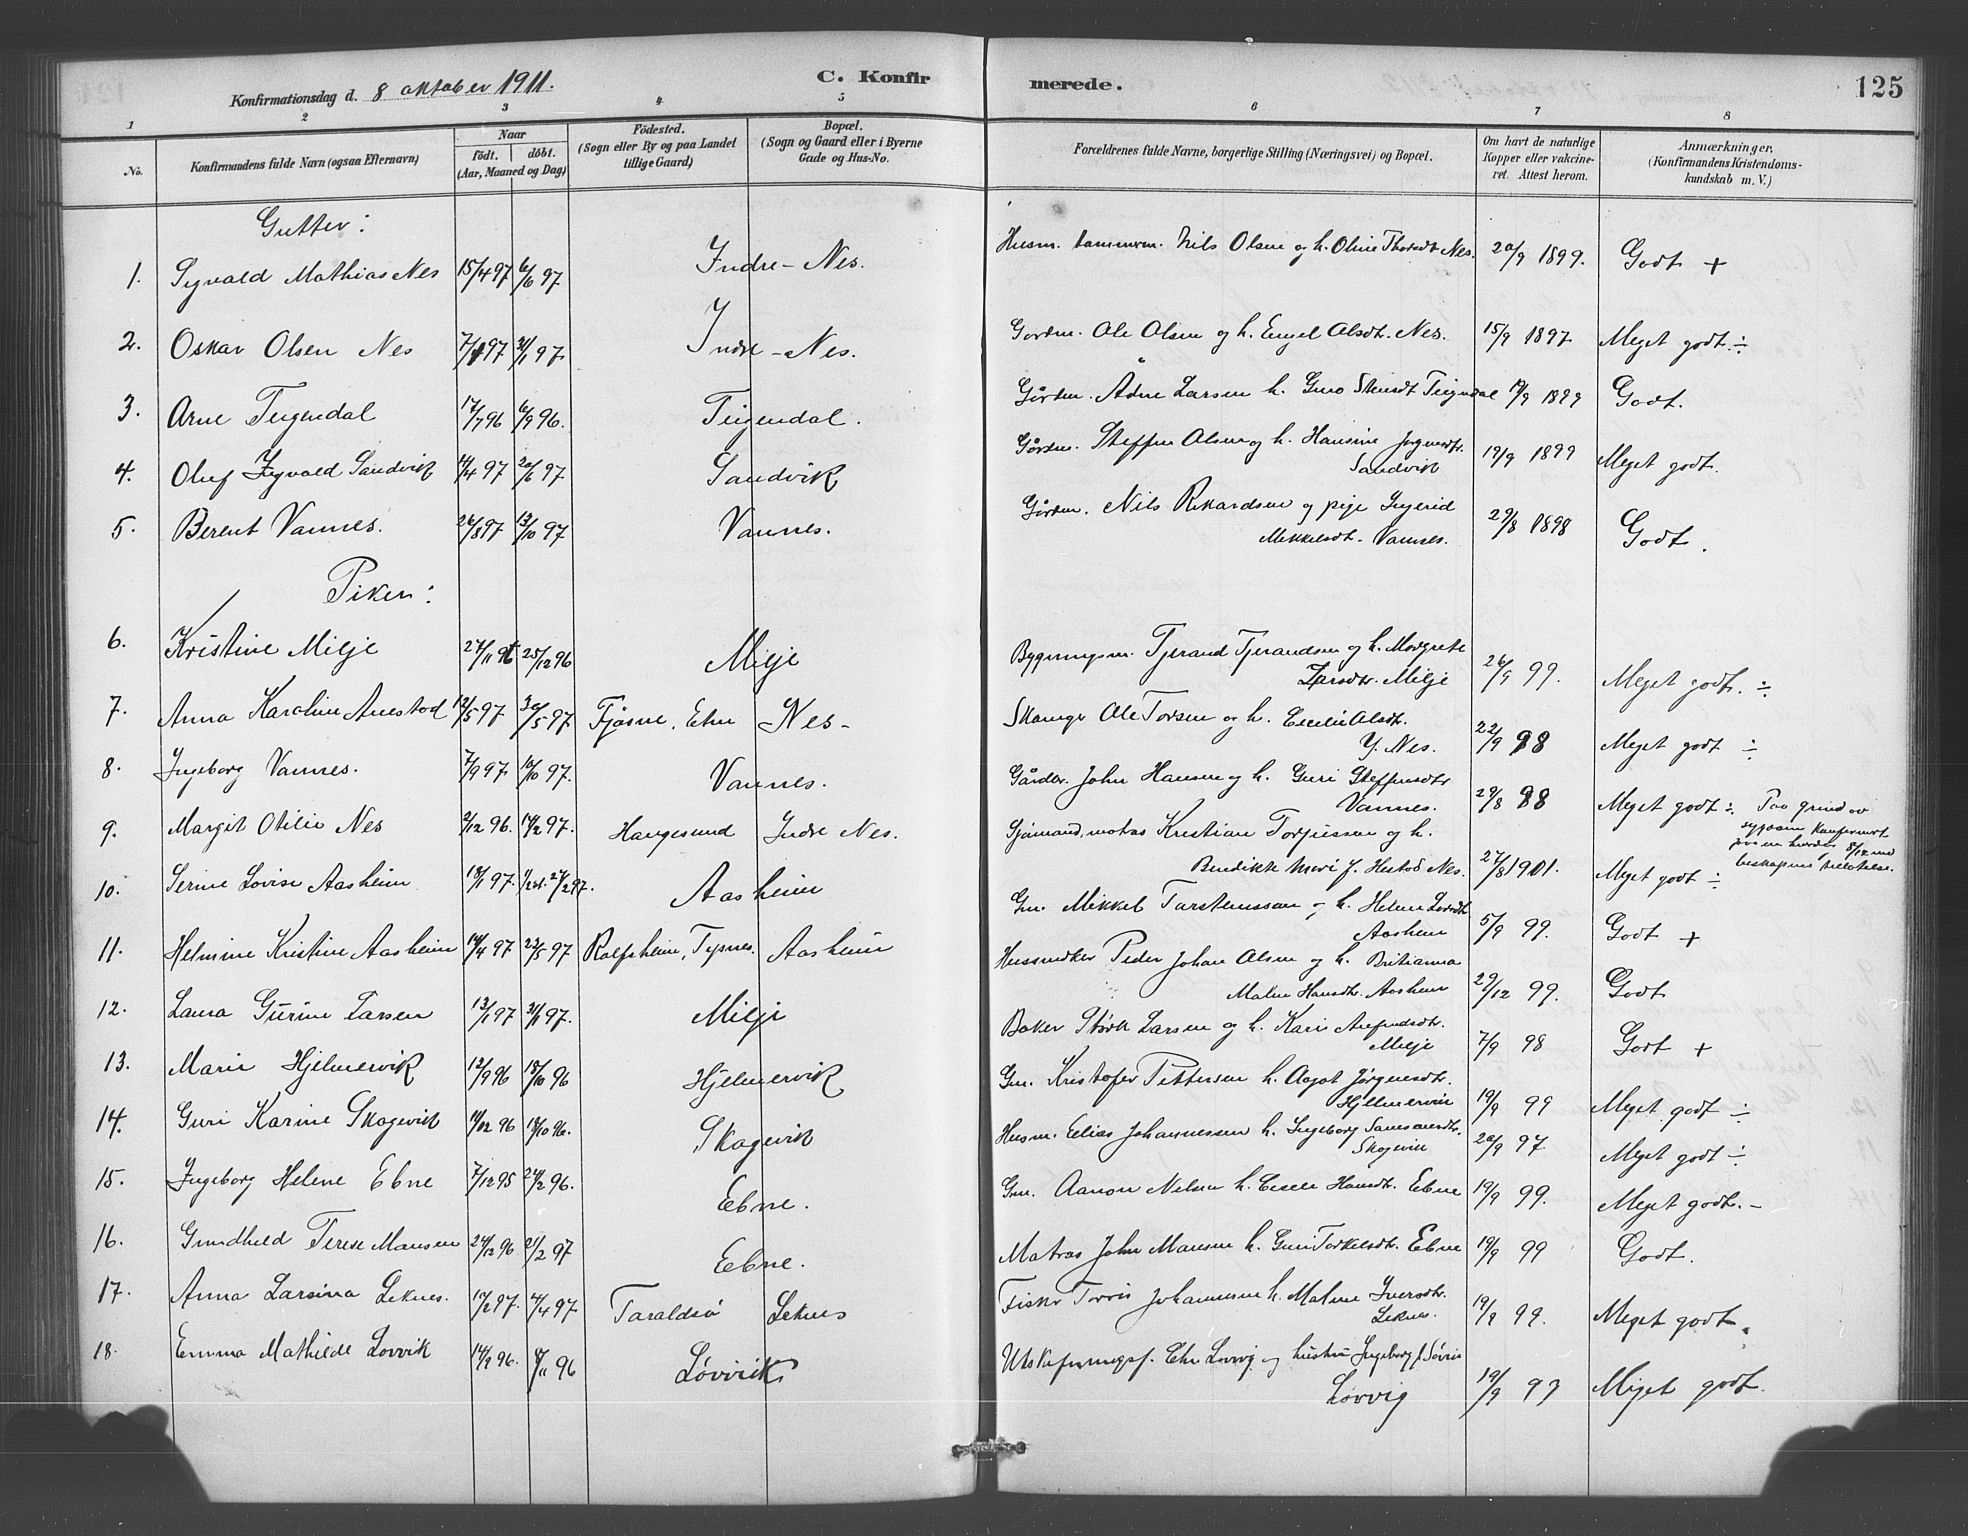 Konfirmationsdag d. 8 oktober 1911. C. Konfirmerede. 125
1 2 3 4 5 6 7 8
No. Konfirmandens fulde Navn (ogsaa Efternavn) Naar födt. döbt. (Aar, Maaned og Dag) Födested. (Sogn eller By og paa Landet tillige Gaard) Bopæl. (Sogn og Gaard eller i Byerne Gade og Hus-No. Forældrenes fulde Navne, borgerlige Stilling (Næringsvei) og Bopæl. Om havt de naturlige Kopper eller vakcineret. Attest herom. Anmærkninger. (Konfirmandens Kristendomskundskab m. V.)
Gutter:
1. Sigvald Mathias Nes 15/4 97 6/6 97 Indre-Nes. Husm. tømmerm. Nils Olsen og h. Oline Thorsdt. Nes. 20/9 1899. Godt +
2. Oskar Olsen Nes 7/1 97 31/1 97. Indre-Nes. Gordm. Ole Olsen og h. Engel Olsdt. Nes. 15/9 1897 Meget godt. ÷
3. Arne Teigendal 17/7 96 6/9 96. Teigendal. Gårdm. Ådne Larsen h. Guro Teigndal 19/9 1899 Godt.
4. Oluf Sigvald Sandvik 14/4 97 20/6 97 Sandvik Gårdm. Steffen Olsen og h. Hansine Jørgensdtr. Sandvik 19/9 1899 Meget godt.
5. Berent Vannes. 26/8 97 13/10 97 Vannes. Gårdm. Nils Rikardsen og pige Ingerid Mikkelsdt. Vannes. 29/8 1898 Godt.
Piker:
6. Kristine Milje 27/11 96 25/12 96 Milje Bygningsm. Tjerand Tjerandsen og h. Margrete Larsdtr. Milje 26/9 99. Meget godt. ÷
7. Anna Karoline Auestad 12/5 97 30/5 97 Fjøsne, Etne Nes- Ole Torsen og h. Cecilie Olsdt. Y. Nes. 22/9 98 Meget godt ÷
8. Ingeborg Vannes. 7/9 97 10/10 97. Vannes. Gårdbr. John Hansen og h. Guri Steffensdtr Vannes. 29/8 98 Meget godt ÷ Paa grund av sygdom konfirmert
9. Margit Otilie Nes 2/12 96. 14/2 97. Haugesund Indre Nes. Sjømand, matros Kristian Torjussen og h. Bendikte Marie f. Hestad Nes. 27/8 1901. Meget godt ÷
10. Serine Lovise Aasheim 18/1 97. 27/2 97. Aasheim Gm. Mikkel Torstenssen og h. Helene Larsdt. Aasheim 5/9 99. Godt +
11. Helmine Kristine Aasheim 14/4 97 23/5 97 Rolfsheim, Tysnes. Aasheim Peder Johan Olsen og h. Britianna Malene Hansdt. Aasheim 29/12 99. Godt
12. Laura Gurine Larsen 13/1 97 31/1 97. Milje Baker Størk Larsen og h. Kari Milje 7/9 98 Godt +
13. Marie Hjelmervik 12/9 96 18/10 96 Hjelmervik Gm. Kristofer Pettersen h. Aagot Jørgensdt. Hjelmervik 19/9 99 Meget godt ÷
14. Guri Karine Skogevik 18/10 96. Skogevik Husm. Elias Johannessen h. Ingeborg Skogevik 20/9 97 Meget godt ÷
15. Ingeborg Helene Ebne 7/12 95 24/2 96. Ebne. Gm. Aanon Nelsen h. Cecele Hansdt. Ebne 19/9 99. Meget godt. -
16. Gundhild Terese Monsen 24/12 96 21/2 97 Ebne. Matros John Monsen h. Guri Torkelsdt. Ebne 19/9 99 Godt.
17. Anna Larsina Leknes. 10/2 97. 4/4 97 Taraldsø Leknes Fisker Torris Johannessen h. Malene Iversdt. Leknes. 19/9 99. Meget godt.
18. Emma Mathilde Lovvik 14/9 96. 8/11 96 Løvvik Utskiftningsf. Lovvig og hustru Ingeborg f. Lovvig 19/9 93 Meget godt.